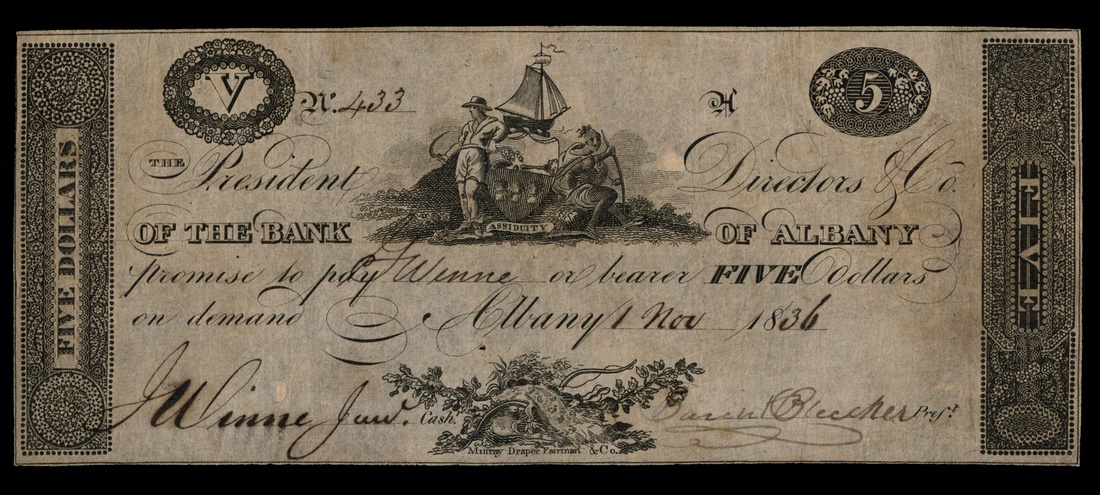 V
Nº. 433
A
5
THE President Directors & Co.
ASSIDUITY
OF THE BANK OF ALBANY
promise to pay Winne or bearer FIVE Dollars
on demand Albany 1 Nov 1836
J Winne Junr. Cash. Bleecker Prest.
Murray Draper Fairman & Co.
FIVE DOLLARS
FIVE